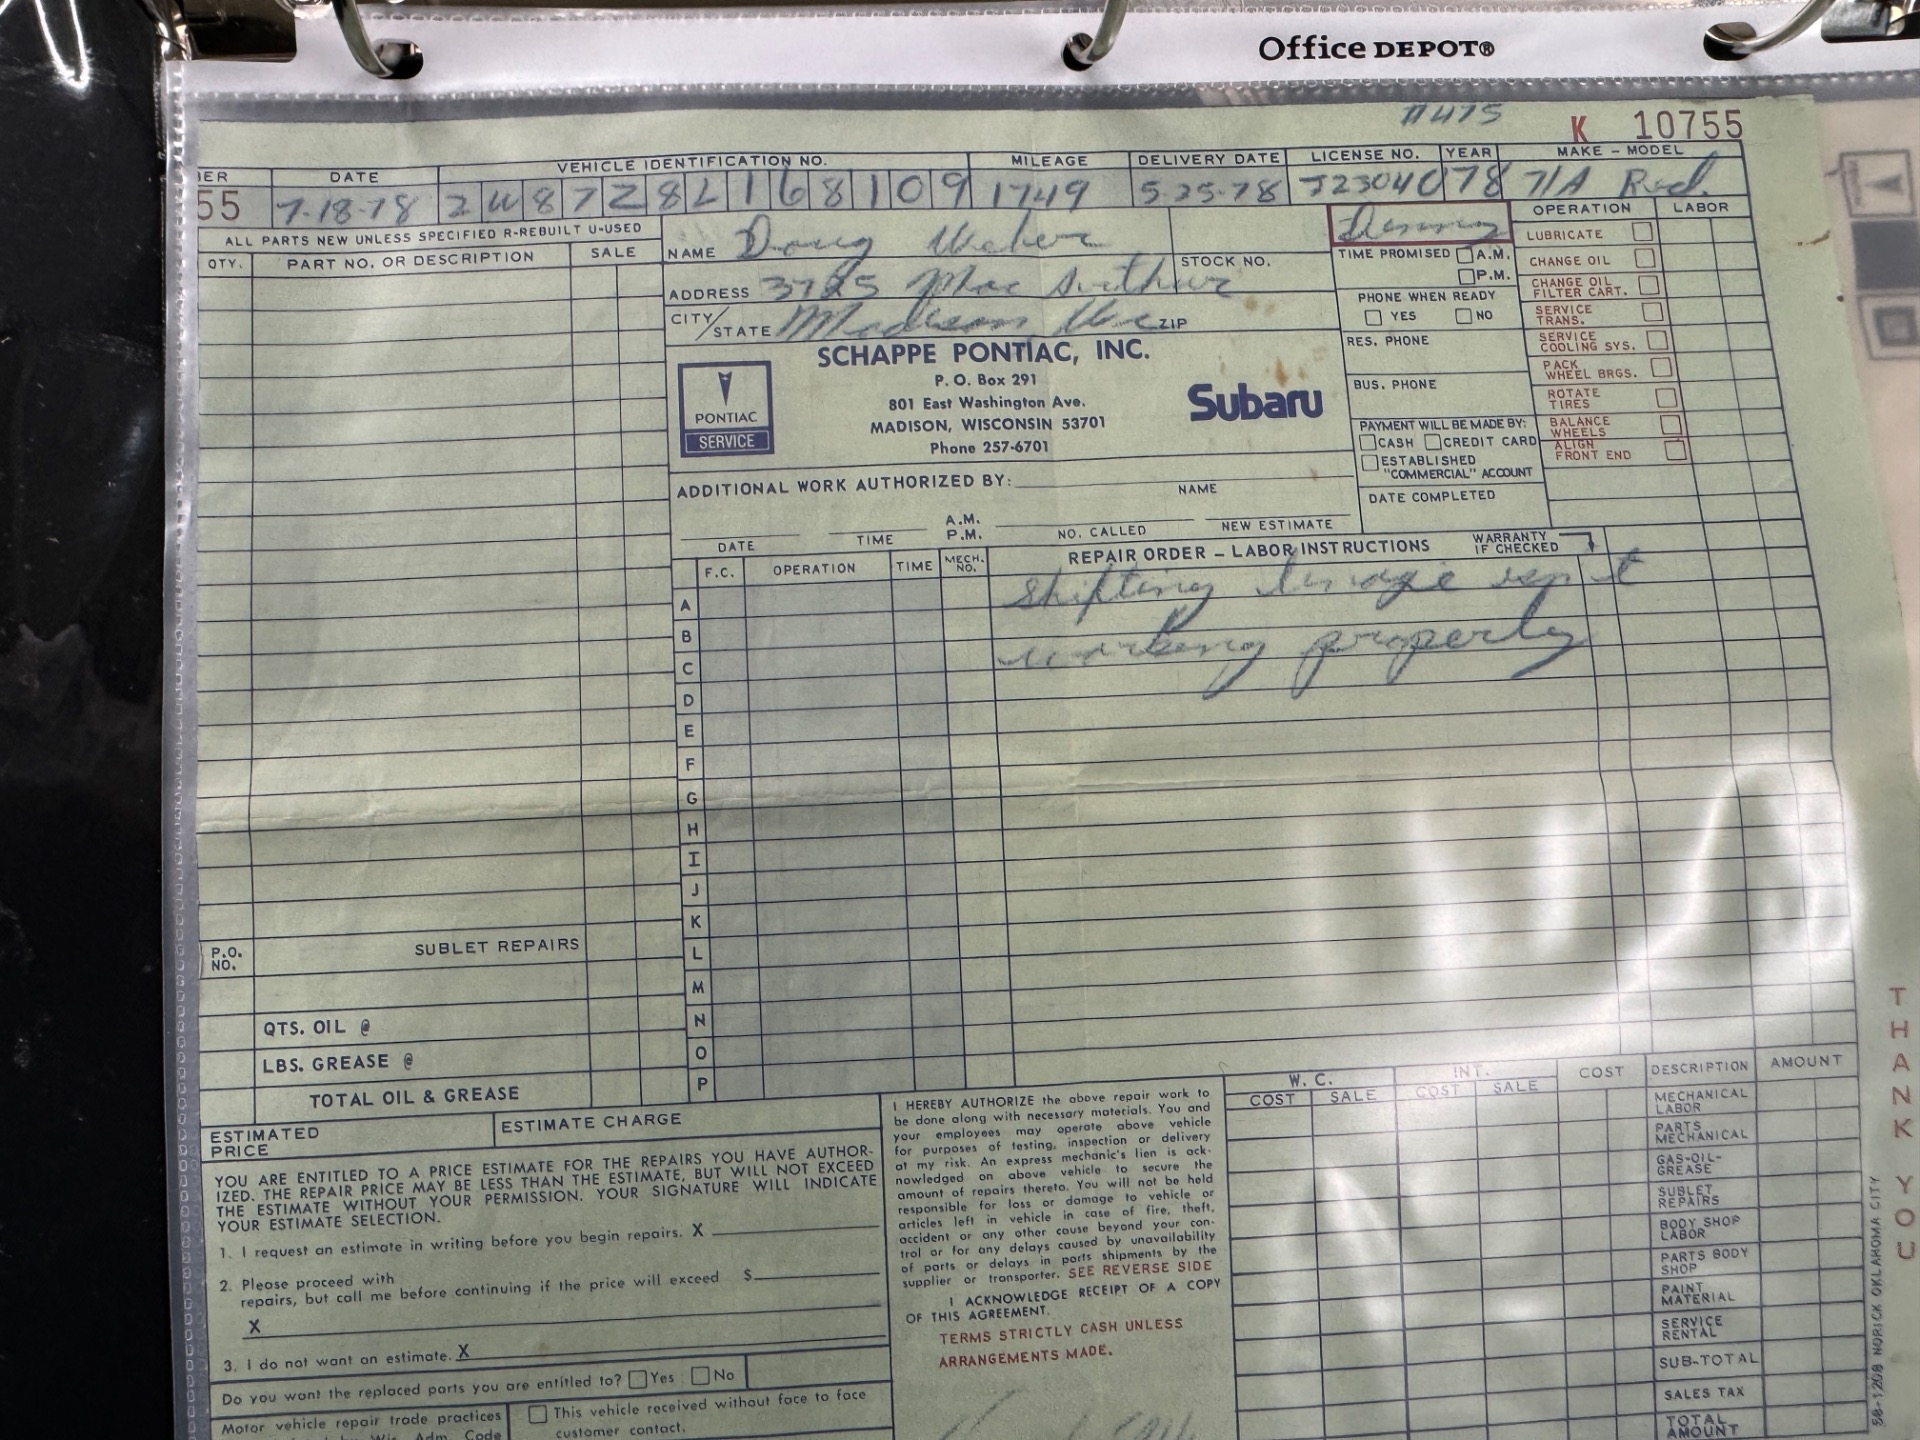 Office DEPOT®
#475
K 10755
BER DATE VEHICLE IDENTIFICATION NO. MILEAGE DELIVERY DATE LICENSE NO. YEAR MAKE - MODEL
55 7-18-78 2W87Z8L168109 1749 5-25-78 J23040 78 T/A Red
ALL PARTS NEW UNLESS SPECIFIED R-REBUILT U-USED
QTY. PART NO. OR DESCRIPTION SALE
NAME Doug Weber
STOCK NO.
ADDRESS 3725 Mac Arthur
CITY/STATE Madison Wis ZIP
SCHAPPE PONTIAC, INC.
P. O. Box 291
801 East Washington Ave.
MADISON, WISCONSIN 53701
Phone 257-6701
PONTIAC
SERVICE
Subaru
Denny
TIME PROMISED A.M.
P.M.
PHONE WHEN READY
YES NO
RES. PHONE
BUS. PHONE
PAYMENT WILL BE MADE BY:
CASH CREDIT CARD
ESTABLISHED
"COMMERCIAL" ACCOUNT
DATE COMPLETED
OPERATION LABOR
LUBRICATE
CHANGE OIL
CHANGE OIL
FILTER CART.
SERVICE
TRANS.
SERVICE
COOLING SYS.
PACK
WHEEL BRGS.
ROTATE
TIRES
BALANCE
WHEELS
ALIGN
FRONT END
ADDITIONAL WORK AUTHORIZED BY:
NAME
DATE TIME A.M.
P.M. NO. CALLED NEW ESTIMATE
F.C. OPERATION TIME MECH.
NO. REPAIR ORDER - LABOR INSTRUCTIONS WARRANTY
IF CHECKED
Shifting
working properly
A
B
C
D
E
F
G
H
I
J
K
L
M
N
O
P
P.O.
NO. SUBLET REPAIRS
QTS. OIL @
LBS. GREASE @
TOTAL OIL & GREASE
ESTIMATED
PRICE
ESTIMATE CHARGE
YOU ARE ENTITLED TO A PRICE ESTIMATE FOR THE REPAIRS YOU HAVE AUTHOR-
IZED. THE REPAIR PRICE MAY BE LESS THAN THE ESTIMATE, BUT WILL NOT EXCEED
THE ESTIMATE WITHOUT YOUR PERMISSION. YOUR SIGNATURE WILL INDICATE
YOUR ESTIMATE SELECTION.
1. I request an estimate in writing before you begin repairs. X
2. Please proceed with
repairs, but call me before continuing if the price will exceed $
X
3. I do not want an estimate. X
Do you want the replaced parts you are entitled to? Yes No
Motor vehicle repair trade practices
by Wis. Adm. Code
This vehicle received without face to face
customer contact.
I HEREBY AUTHORIZE the above repair work to
be done along with necessary materials. You and
your employees may operate above vehicle
for purposes of testing, inspection or delivery
at my risk. An express mechanic's lien is ack-
nowledged on above vehicle to secure the
amount of repairs thereto. You will not be held
responsible for loss or damage to vehicle or
articles left in vehicle in case of fire, theft,
accident or any other cause beyond your con-
trol or for any delays caused by unavailability
of parts or delays in parts shipments by the
supplier or transporter. SEE REVERSE SIDE
I ACKNOWLEDGE RECEIPT OF A COPY
OF THIS AGREEMENT.
TERMS STRICTLY CASH UNLESS
ARRANGEMENTS MADE.
W. C. INT. COST DESCRIPTION AMOUNT
COST SALE COST SALE
MECHANICAL
LABOR
PARTS
MECHANICAL
GAS-OIL-
GREASE
SUBLET
REPAIRS
BODY SHOP
LABOR
PARTS BODY
SHOP
PAINT
MATERIAL
SERVICE
RENTAL
SUB-TOTAL
SALES TAX
TOTAL
AMOUNT
THANK YOU
88-1208 NORICK OKLAHOMA CITY